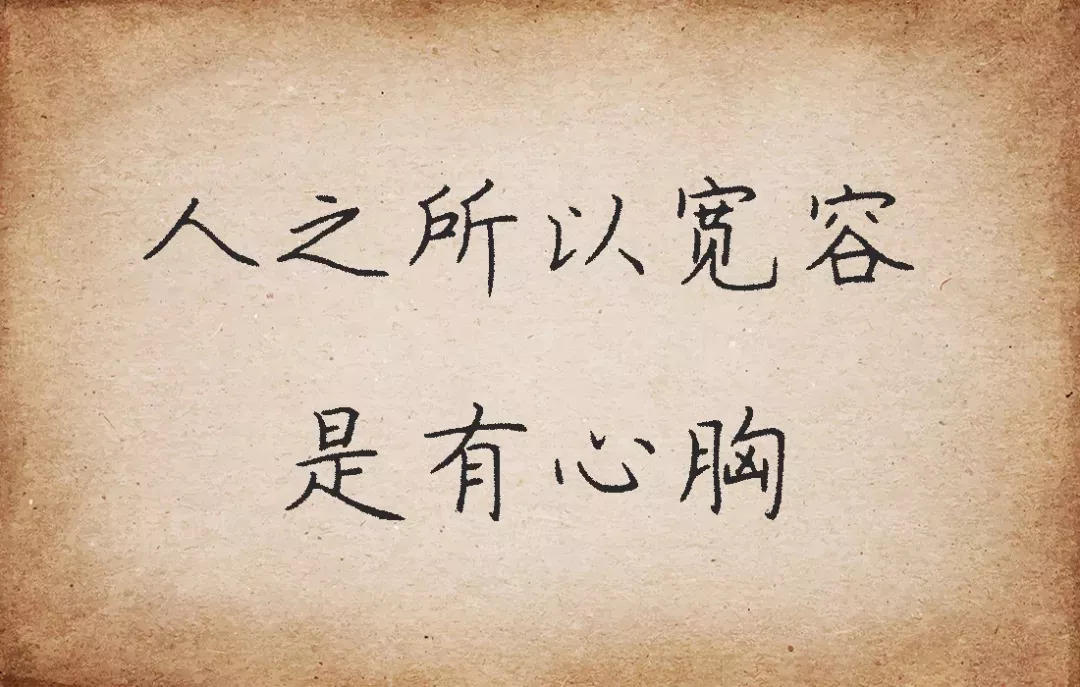 人之所以宽容
是有心胸